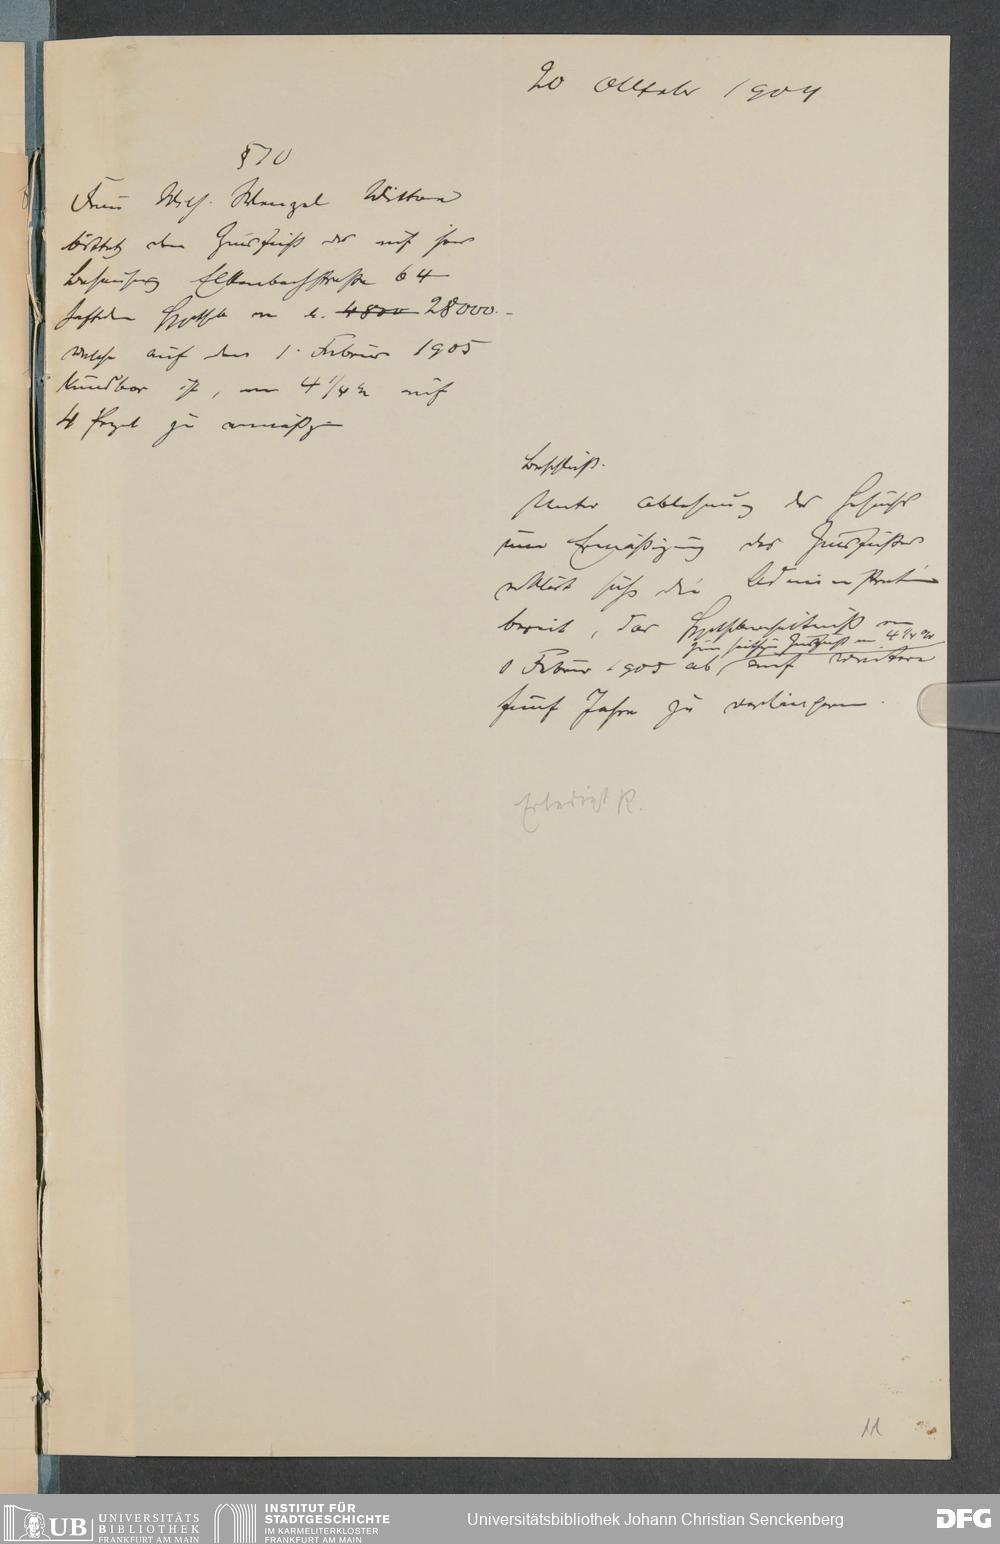 20 Oktober 1904
§ 70
Frau Wilh. Wenzel Wittwe
bittet den Zinsfuß der auf ihrer
Behausung Elkenbachstraße 64
haftenden Hypothek von M. 4800 28000.-
welche auf den 1. Februar 1905
kündbar ist, von 4 1/4 % auf
4 Prozent zu ermäßigen
Beschluß.
Unter Ablehnung des Gesuchs
um Ermäßigung des Zinsfußes
erklärt sich die Administration
bereit, das Hypothekverhältniß vom
zum seitherigen Zinsfuß von 4 1/4 %
1 Februar 1905 ab auf weitere
fünf Jahre zu verlängern.
Erledigt R.
11
UB UNIVERSITÄTS
BIBLIOTHEK
FRANKFURT AM MAIN
INSTITUT FÜR
STADTGESCHICHTE
IM KARMELITERKLOSTER
FRANKFURT AM MAIN
Universitätsbibliothek Johann Christian Senckenberg
DFG